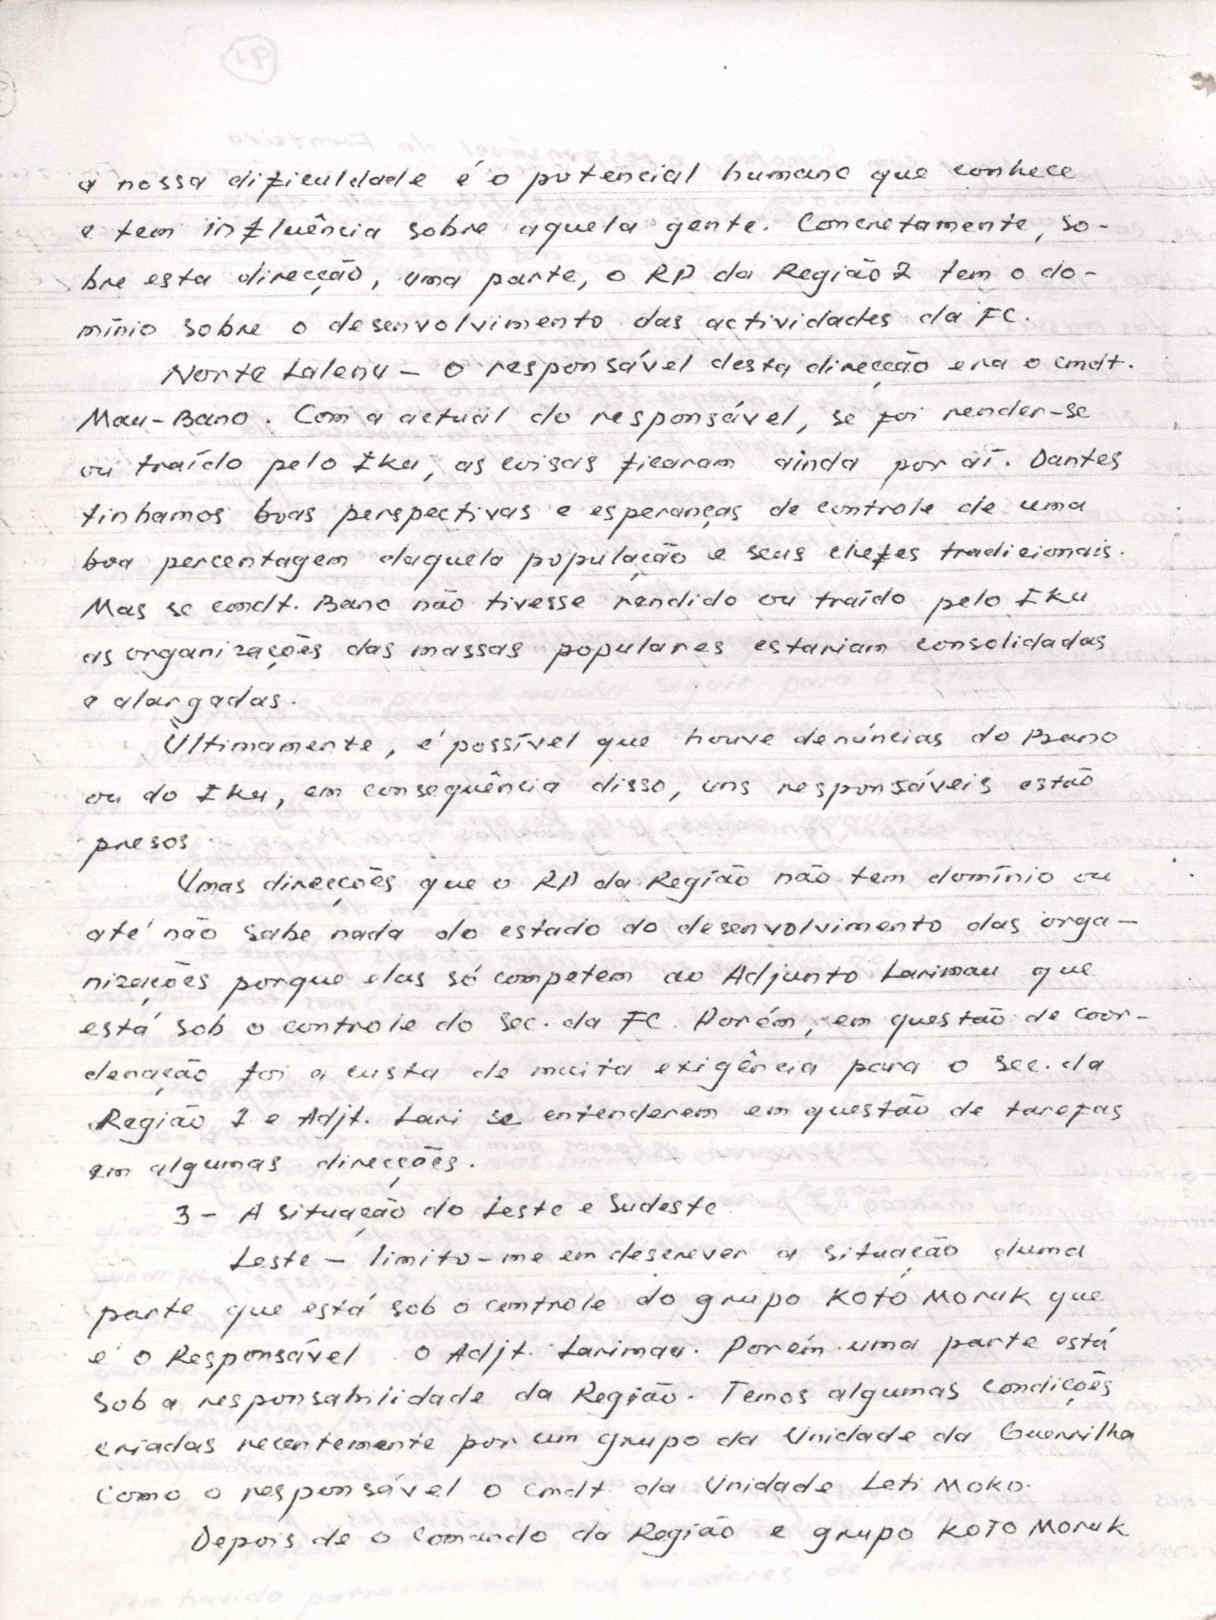 a nossa dificuldade é o potencial humano que conhece
e tem influência sobre aquela gente. Concretamente, so-
bre esta direcção, uma parte, o RP da Região 2 tem o do-
mínio sobre o desenvolvimento das actividades da FC.
Norte Laleny - O responsável desta direcção era o cmdt.
Mau-Bano. Com a actual do responsável, se foi render-se
ou traído pelo Iku, as coisas ficaram ainda por aí. Dantes
tinhamos boas perspectivas e esperanças de controle de uma
boa percentagem daquela população e seus chefes tradicionais.
Mas se cmdt. Bano não tivesse rendido ou traído pelo Iku
as organizações das massas populares estariam consolidadas
e alargadas.
Ultimamente, é possível que houve denúncias do Bano
ou do Iku, em consequência disso, uns responsáveis estão
presos.
Umas direcções que o RP da Região não tem domínio ou
até não sabe nada do estado do desenvolvimento das orga-
nizações porque elas só competem ao Adjunto Larimau que
está sob o controle do Sec. da FC. Porém, em questão de coor-
denação foi a custa de muita exigência para o Sec. da
Região 2 e Adjt. Lari se entenderem em questão de tarefas
em algumas direcções.
3 - A Situação do Leste e Sudeste
Leste - limito-me em descrever a situação duma
parte que está sob o controle do grupo KOTO MORUK que
é o Responsável o Adjt. Larimau. Porém uma parte está
sob a responsabilidade da Região. Temos algumas condições
criadas recentemente por um grupo da Unidade da Guerrilha
como o responsável o Cmdt da Unidade Leti Moko.
Depois de o Comando da Região e grupo KOTO MORUK